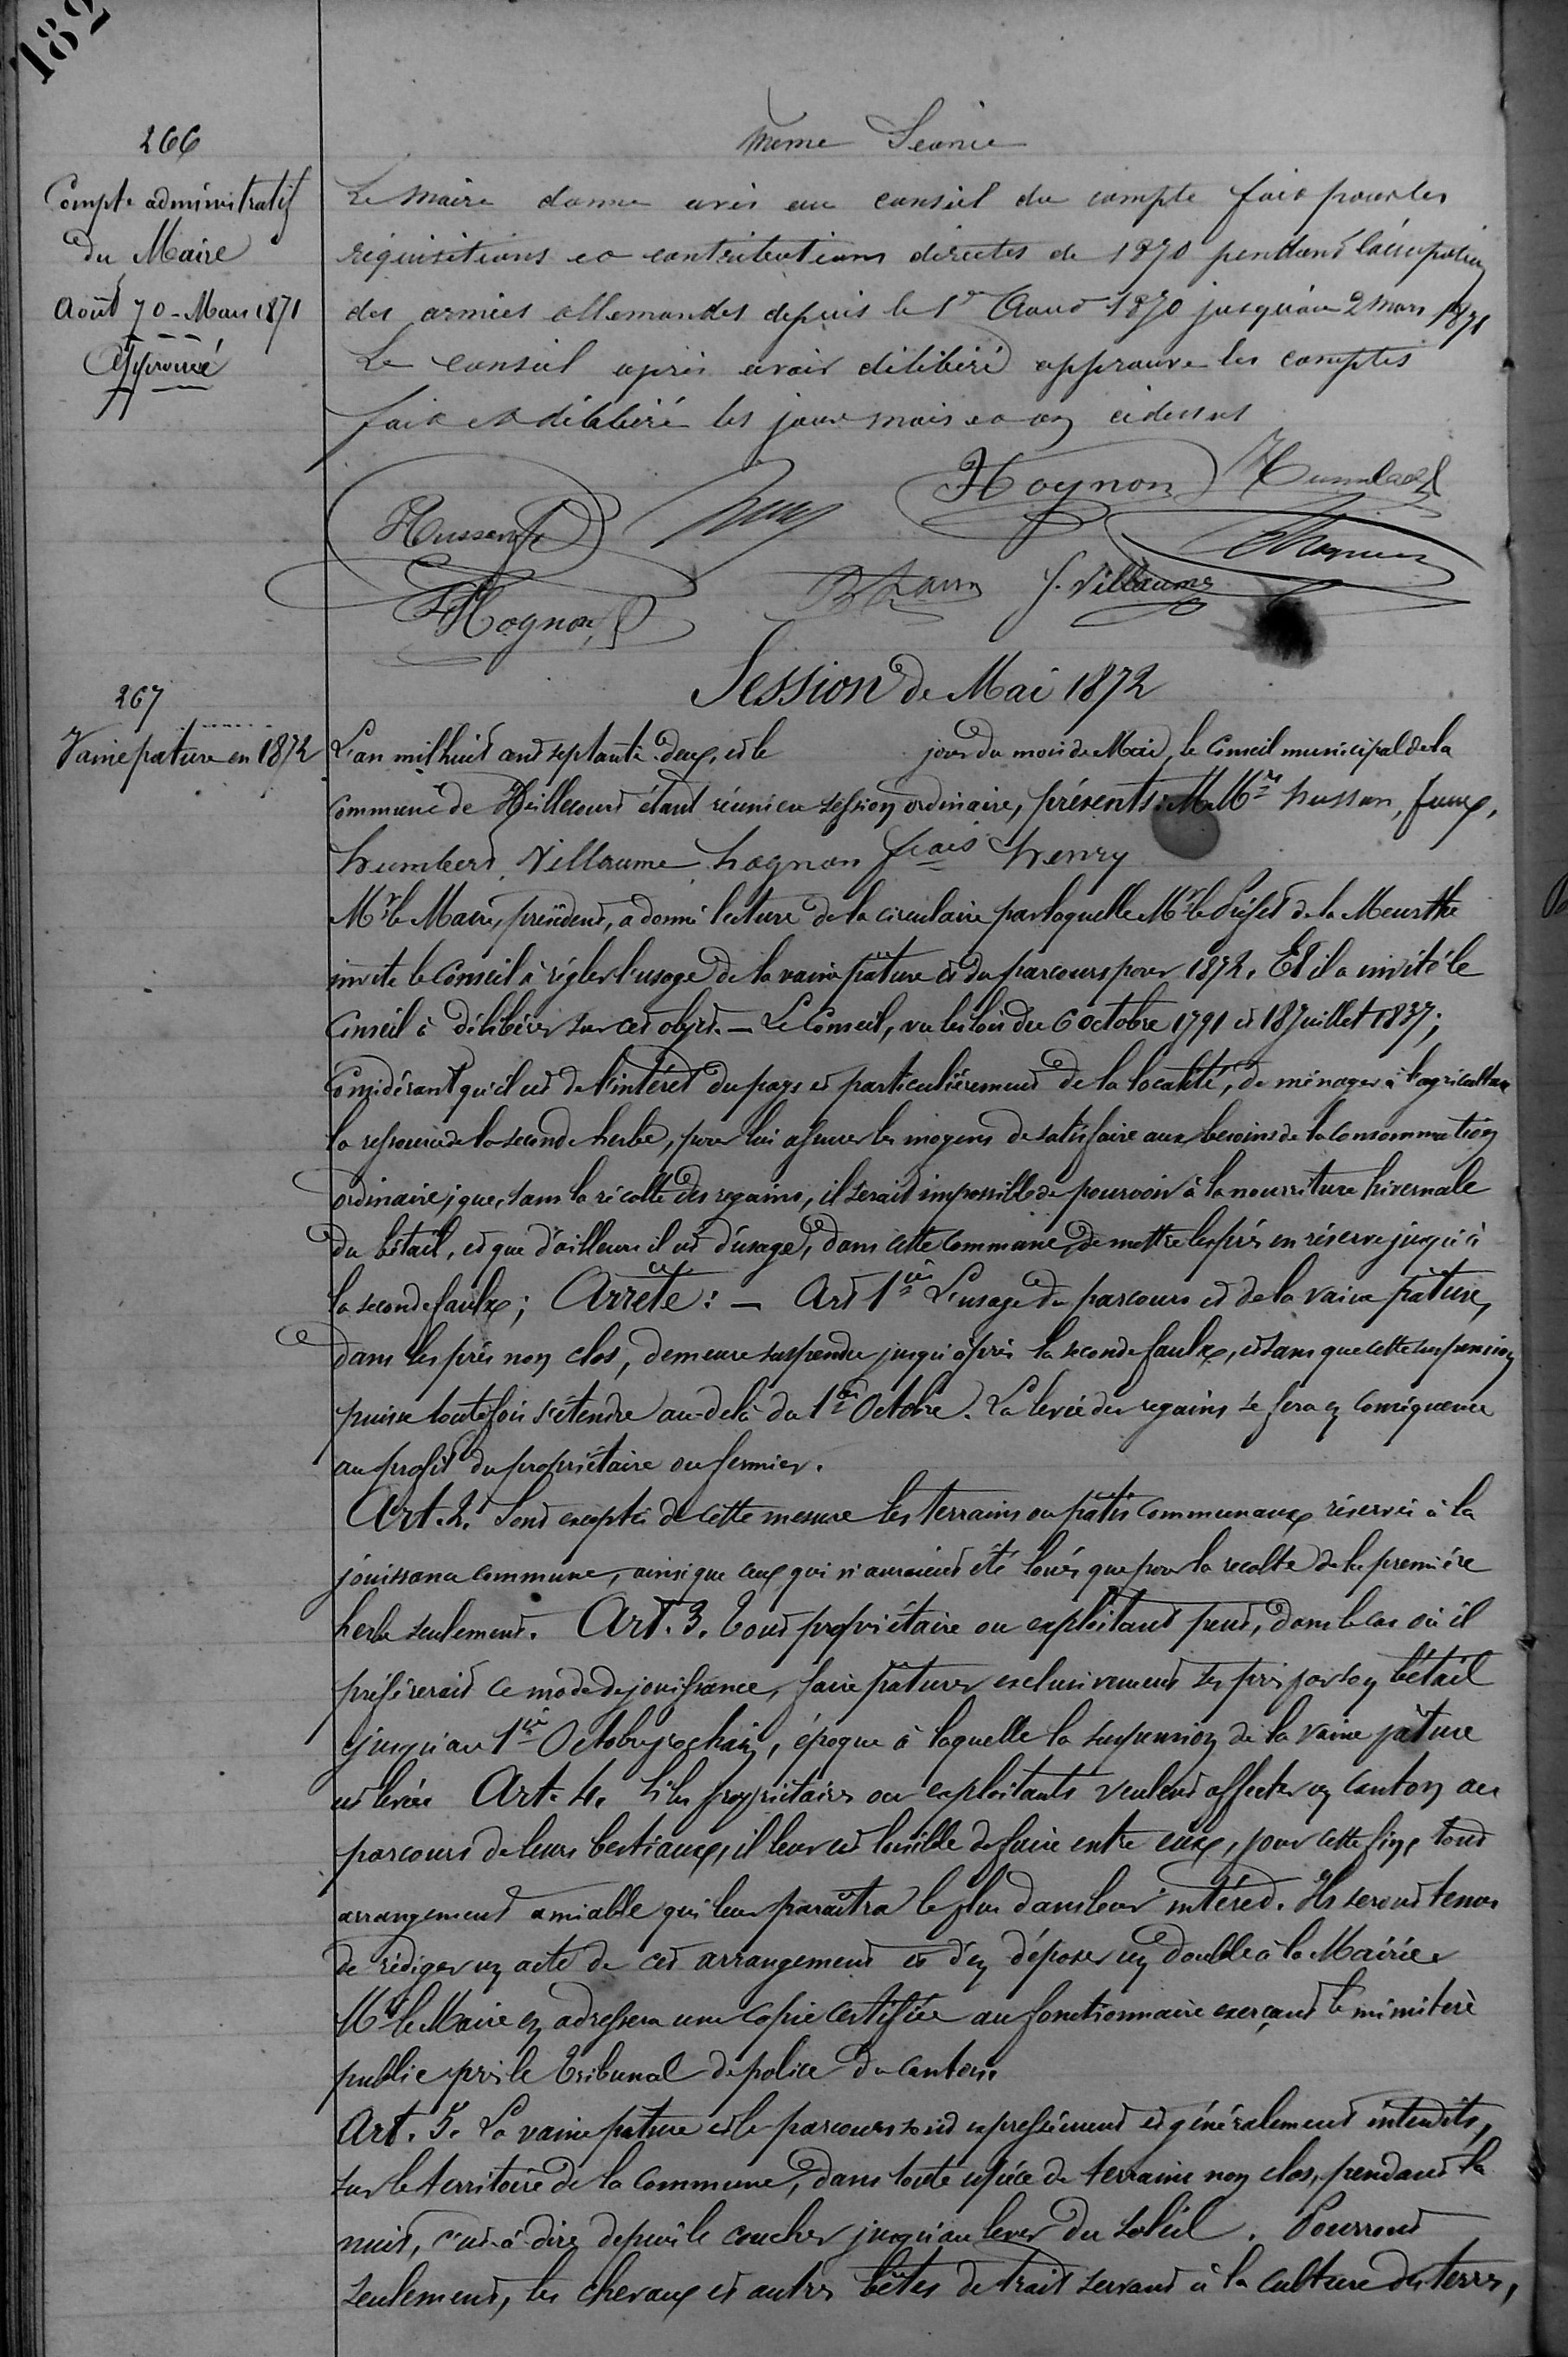 182
266
Compte administratif
du Maire
Août 70 - Mars 1871
Approuvé
même Séance
Le Maire donne avis au conseil du compte fait pour les
réquisitions et contributions directes de 1870 pendant l'occupation
des armées allemandes depuis le 1er Aout 1870 jusqu'au 2 mars 1871
Le conseil après avoir délibéré approuve les comptes
fait et délibéré les jour mois et an cidessus
Hognon Humbert
Husson
Hognon J. Villaume
Session de Mai 1872
267
Vaine pature en 1872
L'an mil huit cent septante-deux, et le jour du mois de Mai, le Conseil municipal de la
commune de Heillecourt étant réuni en session ordinaire, présents: M.Mrs husson,
humbert, Villaume hognon frais henry
Mr le Maire, président, a donné lecture de la circulaire par laquelle Mr le Préfet de la Meurthe
invite le Conseil à régler l'usage de la vaine pâture et du parcours pour 1872. Et il a invité le
Conseil à délibérer sur cet objet. — Le Conseil, vu les lois des 6 octobre 1791 et 18 juillet 1837;
Considérant qu'il est de l'intérêt du pays et particulièrement de la localité, de ménager à l'agriculture
la ressource de la seconde herbe, pour lui assurer les moyens de satisfaire aux besoins de la consommation
ordinaire; que, sans la récolte des regains, il serait impossible de pourvoir à la nourriture hivernale
du bétail, et que d'ailleurs il est d'usage, dans cette commune, de mettre les prés en réserve jusqu'à
la seconde faulx; Arrête: — Art 1er L'usage du parcours et de la vaine pâture,
dans les prés non clos, demeure suspendu jusqu'après la seconde faulx, et sans que cette suspension
puisse toutefois s'étendre au-delà du 1er Octobre. La levée des regains se fera en conséquence
au profit du propriétaire ou fermier.
Art. 2. Sont exceptés de cette mesure les terrains ou pâtis communaux réservés à la
jouissance commune, ainsi que ceux qui n'auraient été loués que pour la recolte de la première
herbe seulement. Art. 3. Tout propriétaire ou exploitant peut, dans le cas où il
préférerait ce mode de jouissance, faire pâturer exclusivement ses prés par son bétail
jusqu'au 1er Octobre prochain, époque à laquelle la suspension de la vaine pâture
est levée Art. 4. Si les propriétaires ou exploitants veulent affecter un canton au
parcours de leurs bestiaux, il leur est loisible de faire entre eux, pour cette fin, tout
arrangement amiable qui leur paraîtra le plus dans leur intérêt. Ils seront tenus
de rédiger un acte de cet arrangement et d'en déposer un double à la Mairie.
Mr le Maire en adressera une copie certifiée au fonctionnaire exerçant le ministère
public près le Tribunal de police du canton.
Art. 5. La vaine pature et le parcours sont expressément et généralement interdits,
sur le territoire de la commune, dans toute espèce de terrains non clos, pendant la
nuit, c'est-à-dire depuis le coucher jusqu'au lever du soleil. Pourront
seulement, les chevaux et autres bêtes de trait servant à la culture des terres,